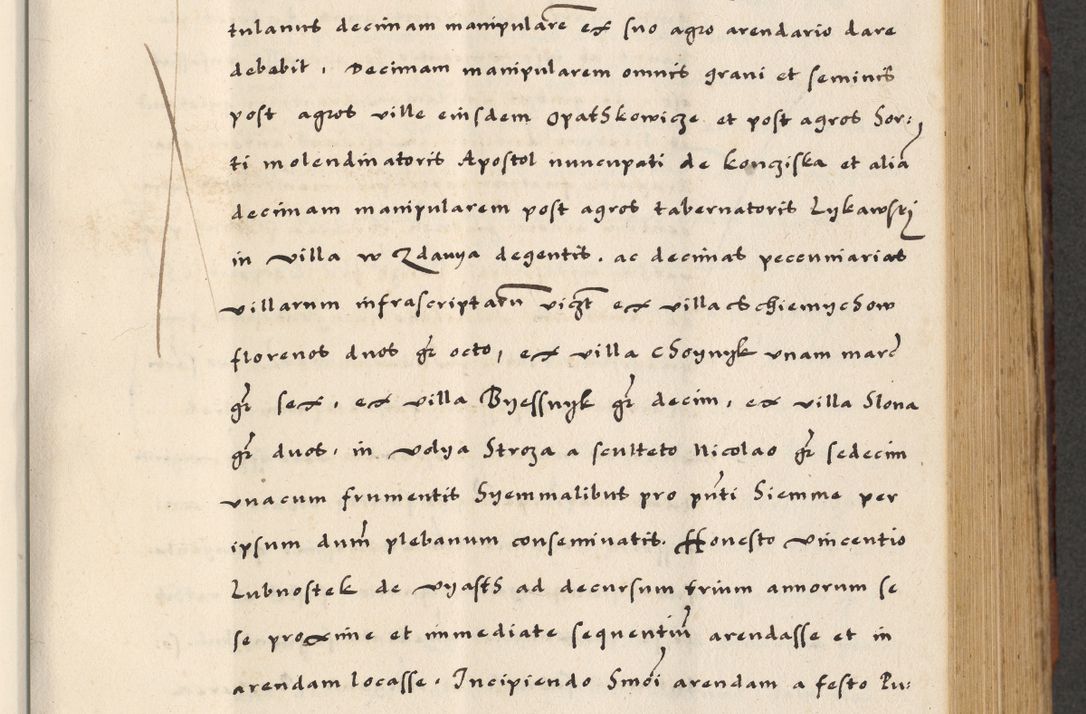 tulanus decimam manipularē ex suo agro arendario dare
debebit, Decimam manipularem omnis grani et seminis
post agros ville eiusdem Opathkowicze et post agros hor:
ti molendinatoris Apostol nuncupati de konciska et aliā
decimam manipularem post agros tabernatoris Lykawsky
in villa w Zdanya degentis. ac decimas pecunniarias
villarum infrascriptarū vicz̄t ex villa cschiemychow
florenos duos gr octo, ex villa choynyk unam marc
gr sex, ex villa Byessnyk gr decim, ex villa Slona
gr duos, in volya Stroza a sculteto Nicolao gr sedecim
unacum frumentis hyemmalibus pro pn̄ti hiemme per
ipsum dum̄ plebanum conseminatis. Honesto vincentio
Lubnostek de vyasth ad decursum trium annorum se
se proxime et immediate sequentiū arendasse et in
arendam locasse. Incipiendo hmōi arendam a festo Pu: